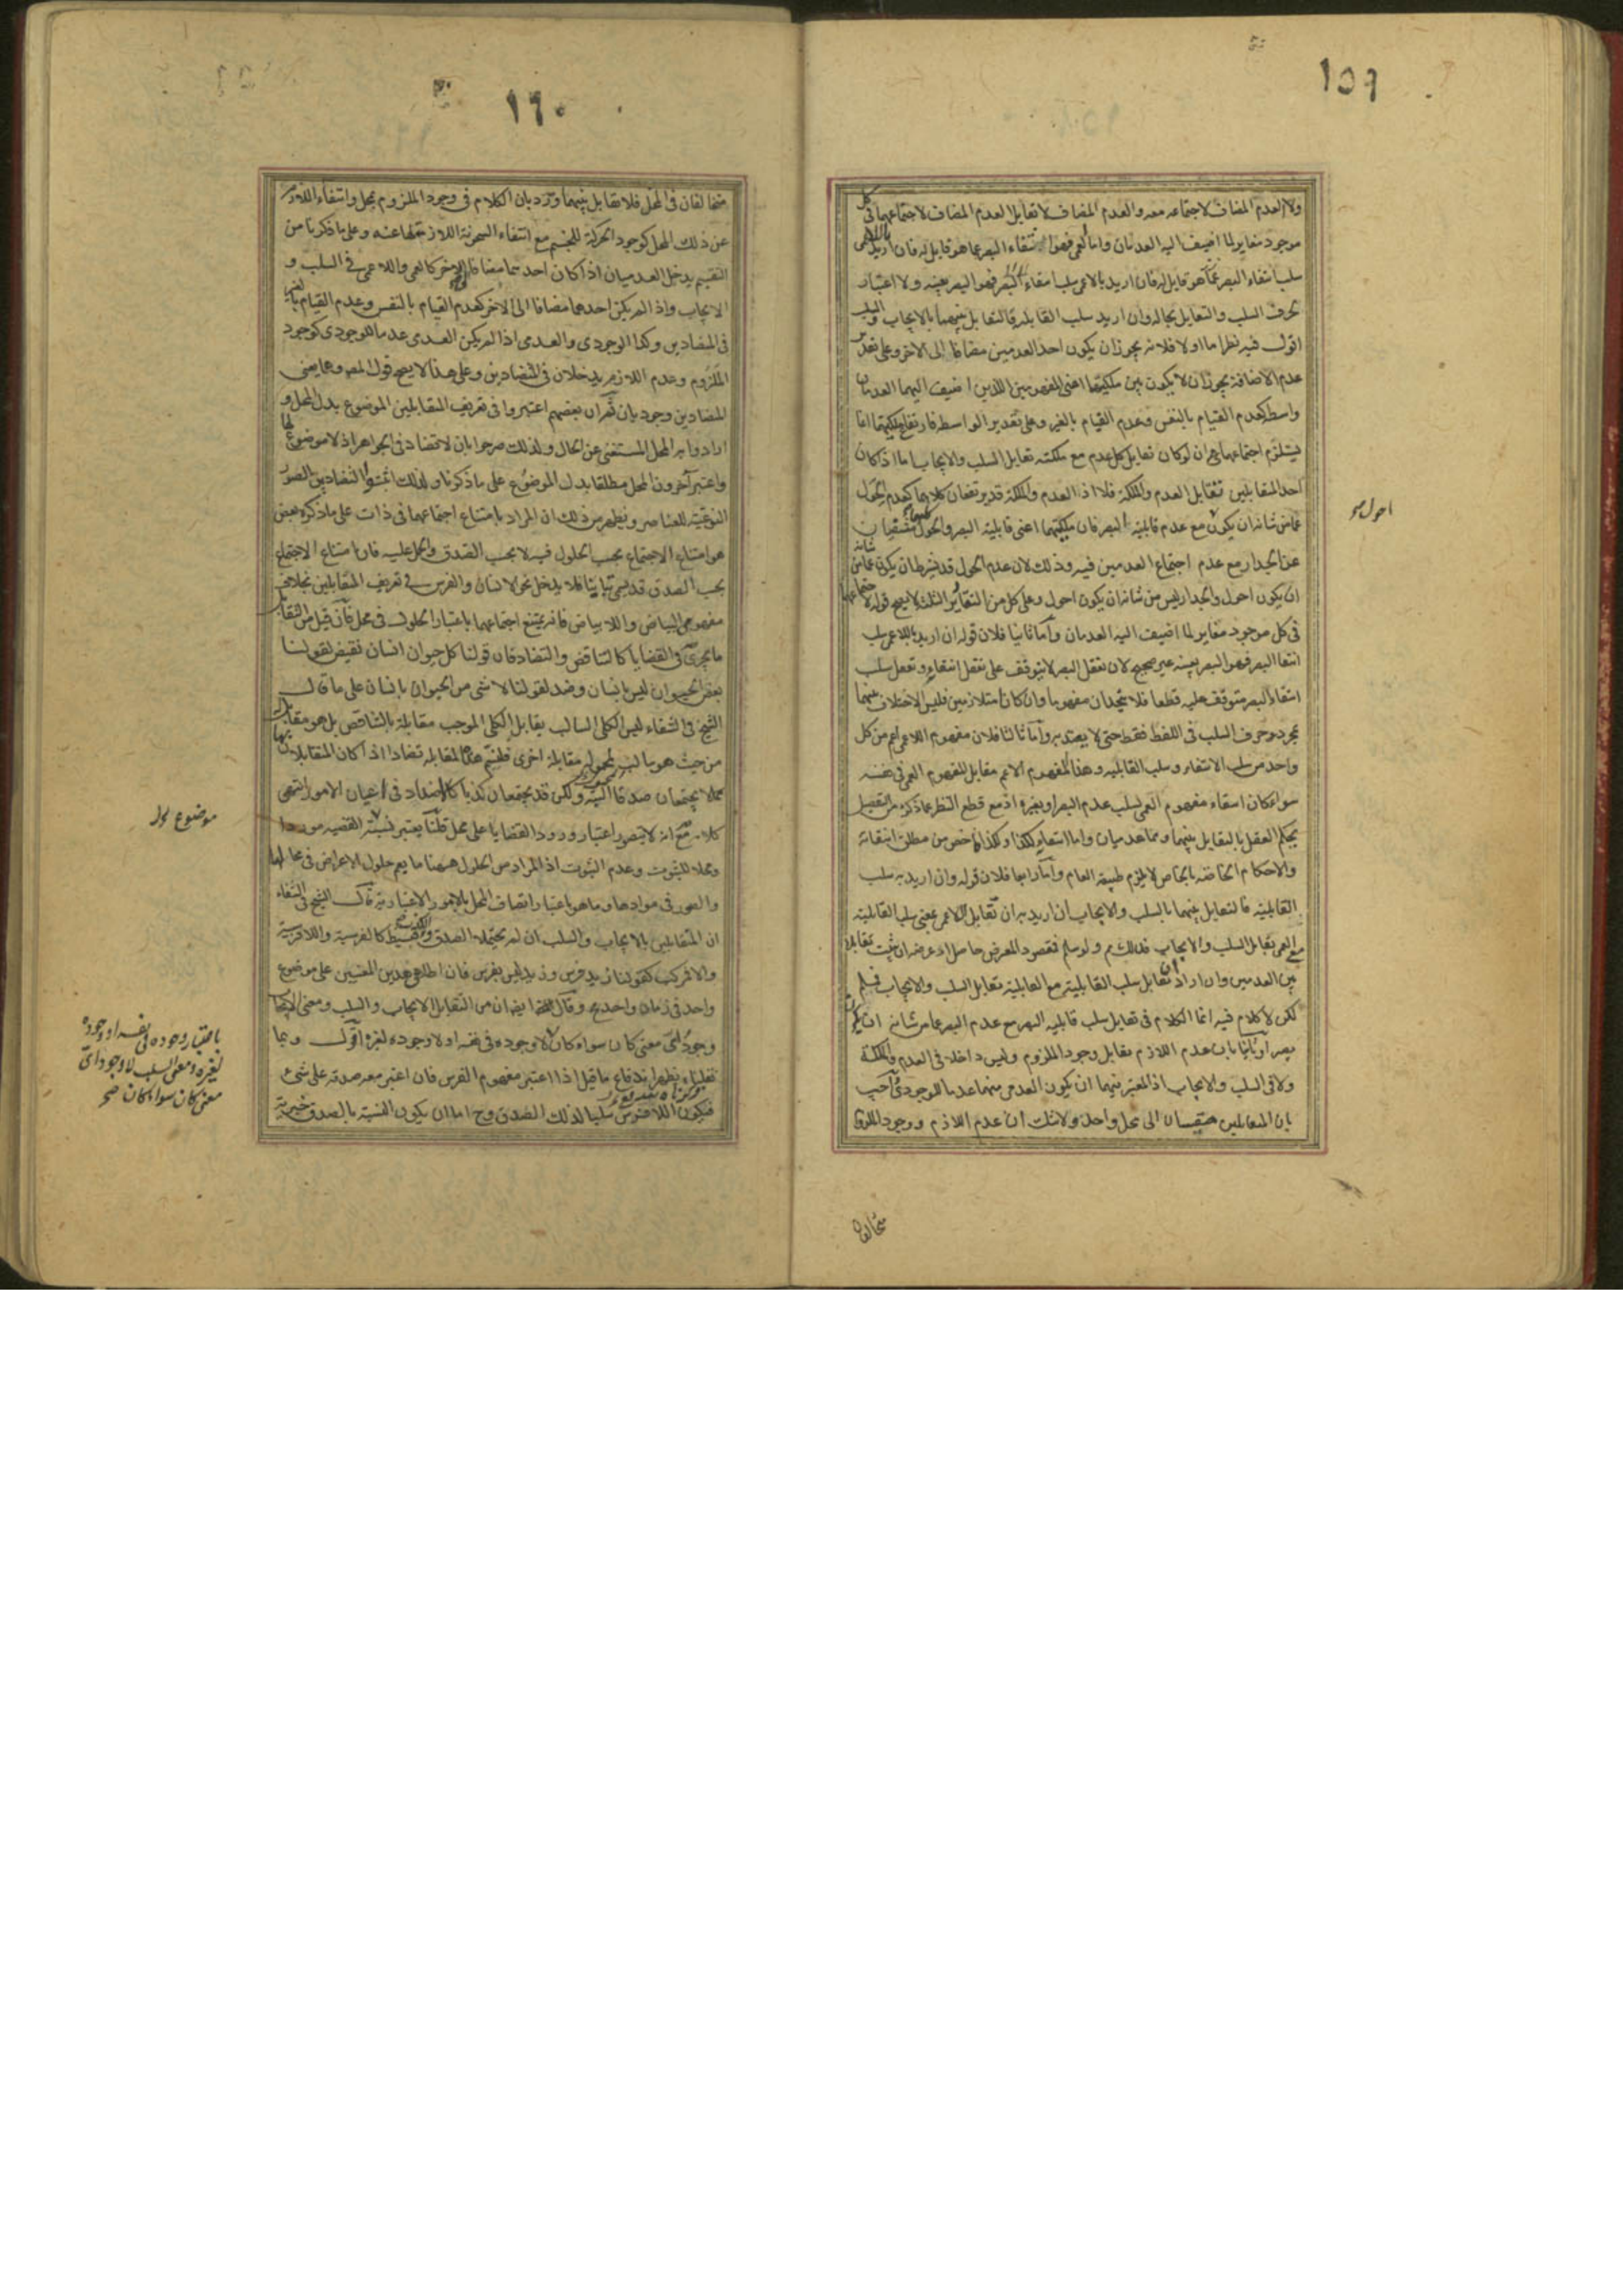 ١٥٩
ولا العدم المضاف لاجتماعه معه والعدم المضاف لا تقابل العدم المضاف لاجتماعهما فى كل
موجود مغاير لما اضيف اليه العدمان واما العمى فهو انتفاء البصر عما هو قابل له فان اريد باللاعمى
سلب انتفاء البصر عما هو قابل له فان اريد باللاعمى سلب انتفاء البصر فهو البصر بعينه ولا اعتبار
بحرف السلب والتقابل بحاله وان اريد سلب القابلية فالتقابل بينهما بالايجاب والسلب
اقول فيه نظر اما اولا فلانه يجوز ان يكون احد العدمين مضافا الى الاخر وعلى تقدير
عدم الاضافة يجوز ان لا يكون بين ملكيتهما اعنى المفهومين اللذين اضيف اليهما العدمان
واسطة كعدم القيام بالنفس وعدم القيام بالغير وعلى تقدير الواسطة فارتفاع ملكيتهما انما
يستلزم اجتماعهما ان لو كان تقابل كل عدم مع ملكته تقابل السلب والايجاب اما اذا كان
احد المتقابلين تقابل العدم والملكة فلا اذ العدم والملكة قد يرتفعان كلاهما كعدم الحول
عما من شانه ان يكون مع عدم قابلية البصر فان ملكيتهما اعنى قابلية البصر والحول منتفيان
عن الجدار مع عدم اجتماع العدمين فيه وذلك لان عدم الحول قد شرط ان يكون عما من شانه
ان يكون احول والجدار ليس من شانه ان يكون احول وعلى كل من التقادير الثلث لا يصح قوله لاجتماعهما
فى كل موجود مغاير لما اضيف اليه العدمان واما ثانيا فلان قوله ان اريد باللاعمى سلب
انتفا البصر فهو البصر بعينه غير صحيح لان تعقل البصر لا يتوقف على تعقل انتفاء وتعقل سلب
انتفاء البصر متوقف عليه قطعا فلا يتحدان مفهوما وان كانا متلازمين فليس الاختلاف بينهما
بمجرد حرف السلب فى اللفظ فقط حتى لا يعتد به واما ثالثا فلان مفهوم اللاعمى اعم من كل
واحد من سلب الانتفاء وسلب القابلية وهذا المفهوم الاعم مقابل لمفهوم العمى فى نفسه
سواء كان انتفاء مفهوم العمى لسلب عدم البصر او بغيره اذ مع قطع النظر عما ذكره من التفصيل
يحكم العقل بالتقابل بينهما وهما عدميان
والاحكام الخاصة بالخاص لا يلزم طبيعة العام واما رابعا فلان قوله وان اريد به سلب
القابلية فالتقابل بينهما بالسلب والايجاب ان اريد به ان تقابل اللاعمى بمعنى سلب القابلية
مع العمى تقابل السلب والايجاب فذلك مم ولو سلم فمقصود المعترض حاصل اذ غرضه ان يثبت تقابلا
بين العدمين وان اراد ان تقابل سلب القابلية مع القابلية تقابل السلب والايجاب فسلم
لكن لا كلام فيه انما الكلام فى تقابل سلب قابلية البصر مع عدم البصر عما من شانه ان يكون
بصيرا وثانيا بان عدم اللازم يقابل وجود الملزوم وليس داخلا فى العدم والملكة
ولا فى السلب والايجاب اذ المعتبر فيهما ان يكون العدمى منهما عدما للوجودى اجيب
بان المتقابلين مقيسان الى محل واحد ولا شك ان عدم اللازم ووجود الملزوم
احول
متخالفان
١٦٠
متخالفان فى المحل فلا تقابل بينهما ورد بان الكلام فى وجود الملزوم بمحل وانتفاء اللازم
عن ذلك المحل كوجود الحركة للجسم مع انتفاء السخونة اللازمة لها عنه وعلى ما ذكرنا من
التقسيم يدخل العدميان اذا كان احدهما مضافا الى الاخر كالعمى واللاعمى فى السلب و
الايجاب واذا لم يكن احدهما مضافا الى الاخر كعدم القيام بالنفس وعدم القيام بالغير
فى المتضادين وكذا الوجودى والعدمى اذا لم يكن العدمى عدما للوجودى كوجود
الملزوم وعدم اللازم يدخلان فى المتضادين وعلى هذا لا يصح قول المصـ وهما يعنى
المتضادين وجوديان ثم ان بعضهم اعتبروا فى تعريف المتقابلين الموضوع بدل المحل و
ارادوا به المحل المستغنى عن الحال ولذلك صرحوا بان لا تضاد فى الجواهر اذ لا موضوع لها
واعتبر آخرون المحل مطلقا بدل الموضوع على ما ذكرنا ولذلك اثبتوا التضاد بين الصور
النوعية للعناصر ويظهر من ذلك ان المراد بامتناع اجتماعهما فى ذات على ما ذكره بعض
هو امتناع الاجتماع بحسب الحلول فيه لا بحسب الصدق والحمل عليه فان امتناع الاجتماع
بحسب الصدق قد يسمى تباينا فلا يدخل نحو الانسان والفرس فى تعريف المتقابلين بخلاف
مفهومى البياض واللابياض فانه يمتنع اجتماعهما باعتبار الحلول فى محل فان قيل من التقابل
ما يجرى فى القضايا كالتناقض والتضاد فان قولنا كل حيوان انسان نقيض لقولنا
بعض الحيوان ليس بانسان وضد لقولنا لا شى من الحيوان بانسان على ما قال
الشيخ فى الشفاء ليس الكلى السالب يقابل الكلى الموجب مقابلة بالتناقض بل هو مقابل
من حيث هو سالب لمحموله مقابلة اخرى فلنسم هذه المقابلة تضادا اذا كان المتقابلان بها
مما لا يجتمعان صدقا البتة ولكن قد يجتمعان كذبا كالاضداد فى اعيان الامور انتهى
كلامه مع انه لا يتصور اعتبار ورود القضايا على محل قلنا يعتبر نسبة القضية موردا
ومحلا للثبوت وعدم الثبوت اذ المراد من الحلول ههنا ما يعم حلول الاعراض فى محالها
والصور فى موادها وما هو باعتبار اتصاف المحل بالامور الاعتبارية قال الشيخ فى الشفاء
ان المتقابلين بالايجاب والسلب ان لم يحتملا الصدق والكذب فبسيط كالفرسية واللافرسية
والا فمركب كقولنا زيد فرس وزيد ليس بفرس فان اطلاق هذين المعنيين على موضوع
واحد فى زمان واحد مح وقال ايضا ان من التقابل الايجاب والسلب ومعنى الايجاب
وجود اى معنى كان سواء كان لا وجوده فى نفسه او لا وجوده لغيره اقول وبما
نقلناه يظهر اندفاع ما قيل اذا اعتبر مفهوم الفرس فان اعتبر معه صدقه على شئ
فيكون اللافرس سلبا لذلك الصدق وح اما ان يكون النسبة بالصدق خبرية
موضوع
باعتبار وجوده فى نفسه او وجوده
لغيره ومعنى السلب لا وجود اى
معنى كان سواء كان صح